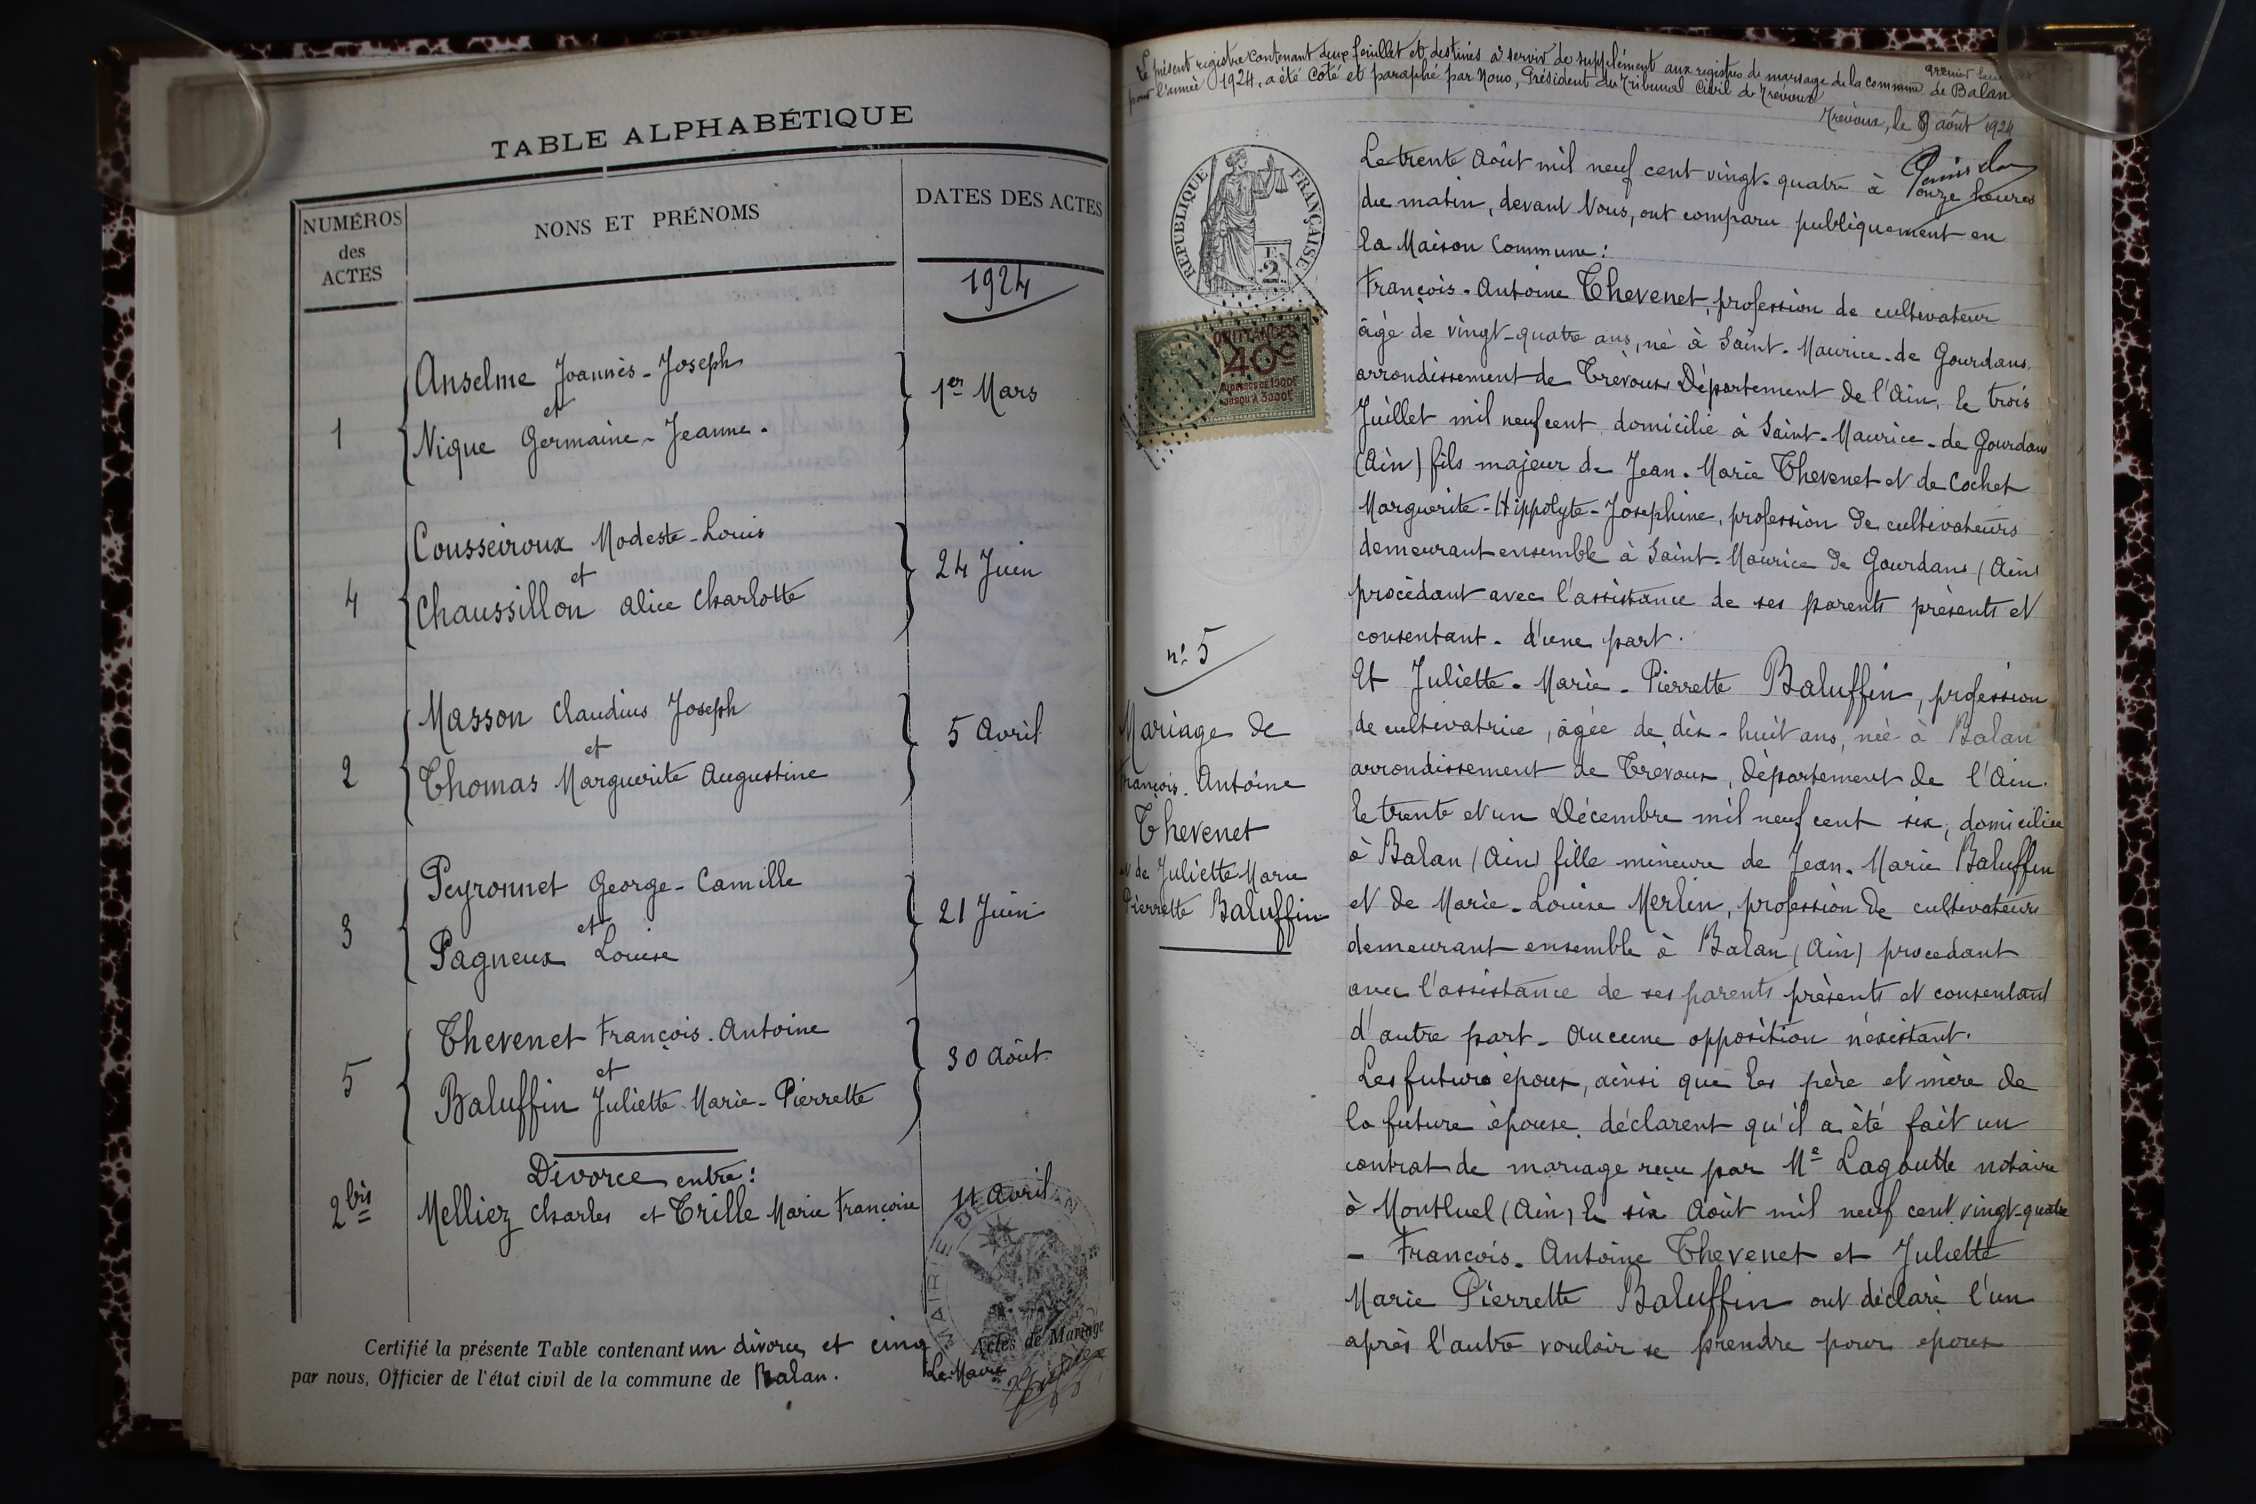 TABLE ALPHABÉTIQUE
NUMÉROS
des
ACTES
NONS ET PRÉNOMS
DATES DES ACTES
1924
Anselme Joannès-Joseph
1 et 1er Mars
Nique Germaine-Jeanne.
Cousseiroux Modeste-Louis
4 et 24 Juin
Chaussillon Alice Charlotte
Masson Claudius Joseph
2 et 5 Avril
Thomas Marguerite Augustine
Peyronnet George-Camille
3 et 21 Juin
Pagneux Louise
Thevenet François.Antoine
5 et 30 Août
Baluffin Juliette Marie-Pierrette
Divorce entre:
2 bis Melliez Charles et Trille Marie Françoise 11 Avril
MAIRIE DE BALAN
Certifié la présente Table contenant un divorce et cinq Actes de Mariage
par nous, Officier de l'état civil de la commune de Balan.
Le Maire
Le présent registre contenant deux feuillet et destinés à servir de supplément aux registres de mariage de la commune de Balan
premier
pour l'année 1924, a été coté et paraphé par Nous, Président du Tribunal Civil de Trévoux
Trévoux, le 8 août 1924
RÉPUBLIQUE FRANÇAISE
2
QUITTANCES
40c
AU DESSUS DE 1000F
JUSQU'À 3000F
n° 5
Mariage de
François. Antoine
Thevenet
et de Juliette Marie
Pierrette Baluffin
Le trente Août mil neuf cent vingt-quatre à onze heures
du matin, devant Nous, ont comparu publiquement en
la Maison Commune:
François-Antoine Thevenet, profession de cultivateur
âgé de vingt-quatre ans, né à Saint-Maurice-de Gourdans
arrondissement de Trévoux Département de l'Ain, le trois
Juillet mil neuf cent domicilié à Saint-Maurice-de Gourdans
(Ain) fils majeur de Jean-Marie Thevenet et de Cochet
Marguerite-Hippolyte-Josephine, profession de cultivateurs
demeurant ensemble à Saint-Maurice de Gourdans (Ain)
procèdant avec l'assistance de ses parents présents et
consentant. d'une part.
Et Juliette-Marie-Pierrette Baluffin, profession
de cultivatrice, âgée de dix-huit ans, née à Balan
arrondissement de Trévoux, département de l'Ain.
le trente et un Décembre mil neuf cent six, domiciliée
à Balan (Ain) fille mineure de Jean-Marie Baluffin
et de Marie-Louise Merlin, profession de cultivateurs
demeurant ensemble à Balan (Ain) procedant
avec l'assistance de ses parents présents et consentant
d'autre part - Aucune opposition n'existant.
Les futurs époux, ainsi que les père et mère de
la future épouse déclarent qu'il a été fait un
contrat de mariage reçu par Me Lagoutte notaire
à Montluel (Ain) le six Août mil neuf cent vingt-quatre
- François-Antoine Thevenet et Juliette
Marie Pierrette Baluffin ont déclaré l'un
après l'autre vouloir se prendre pour epoux